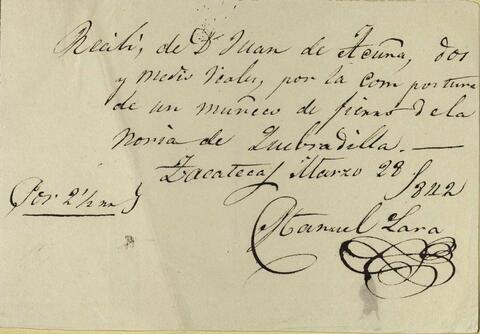 Recibí, de D. Juan de Acuña, dos
y medio reales, por la compostura
de un muñeco de fierro de la
Noria de Quebradilla. —
Zacatecas Marzo 28 1842
Por 2 1/2 rs
Manuel Lara